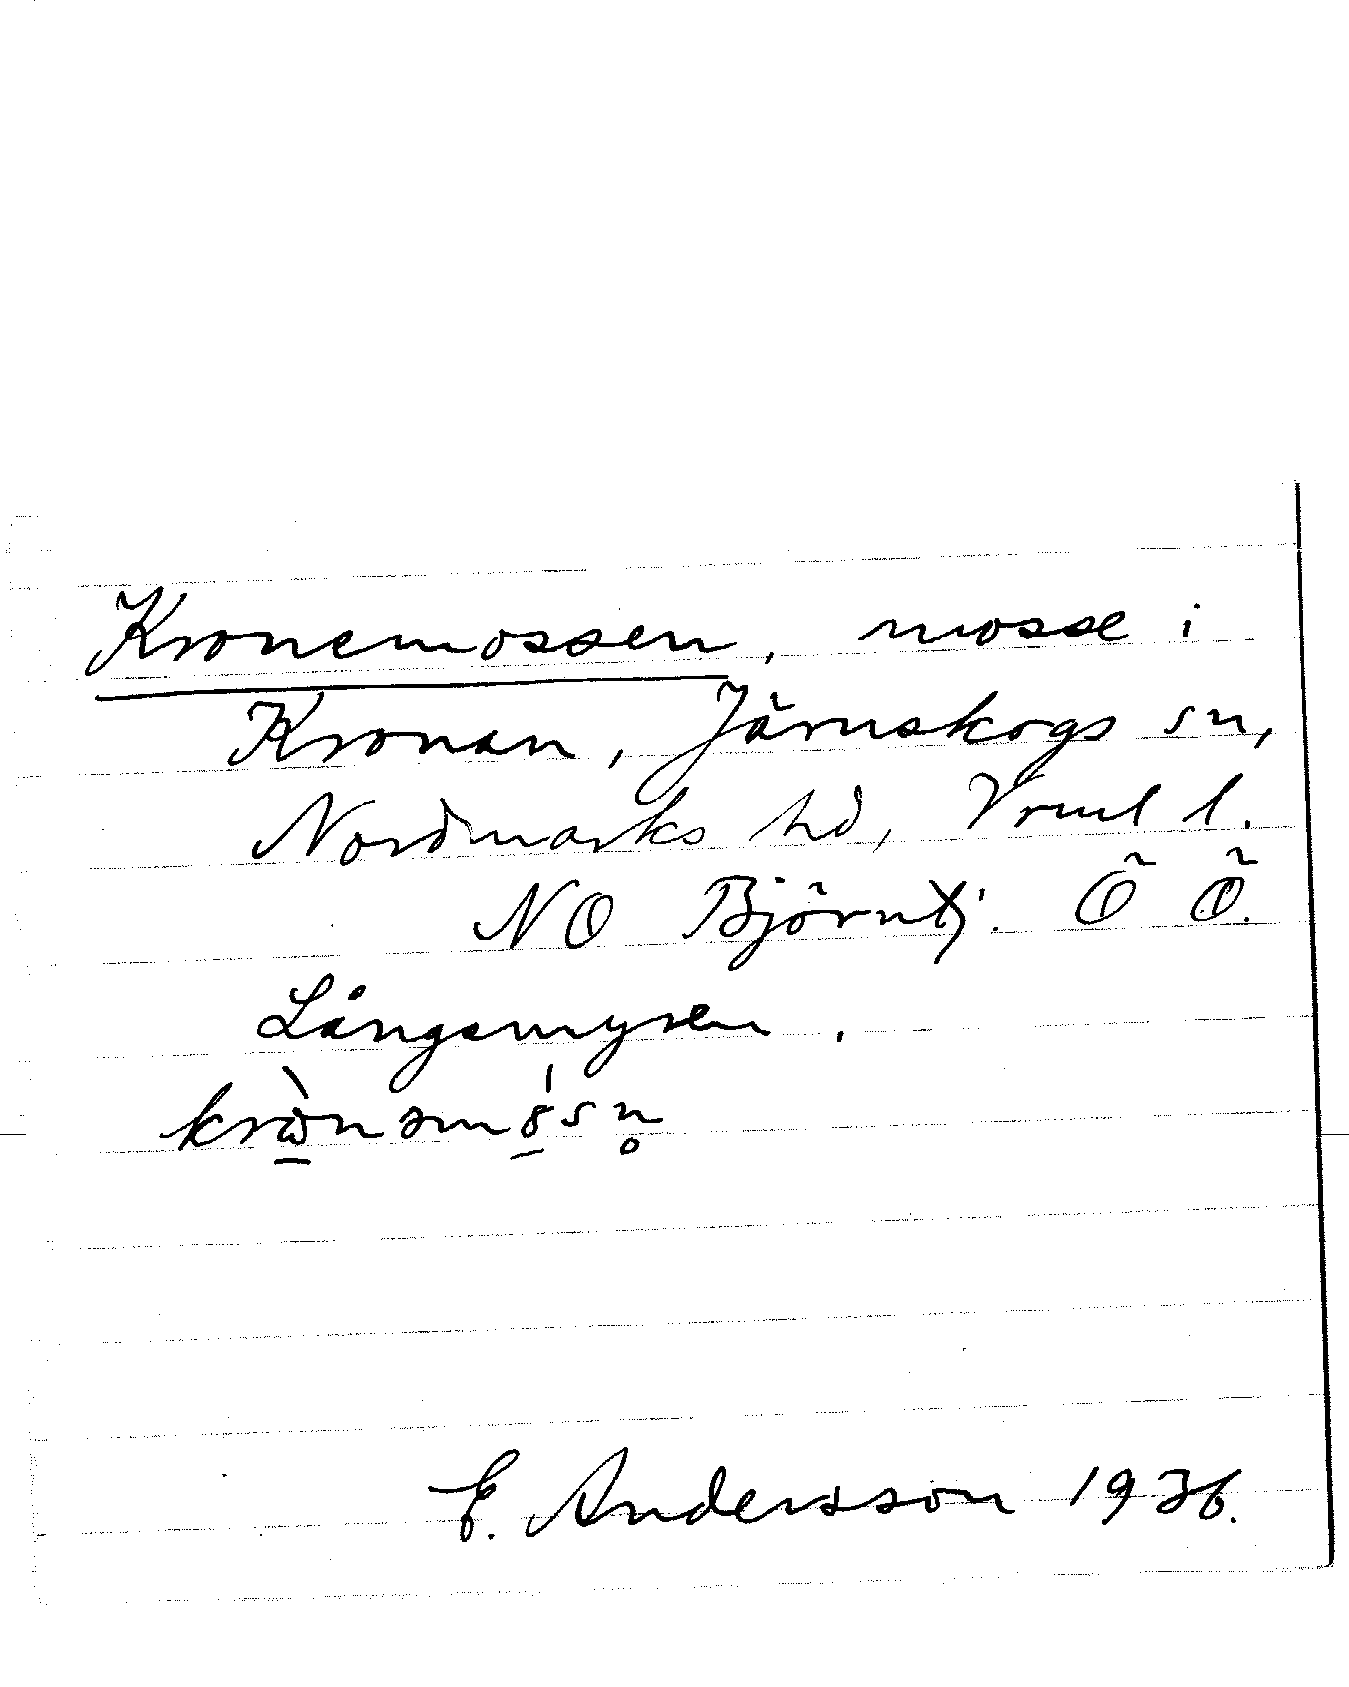 Kronemossen, mosse i
Kronan, Järnskogs sn,
Nordmarks hd, Vrml l.
NO Björntj. Ö Ö.
Långemyren.
krὼ̱nəmó̱sn̥
E. Andersson 1936.